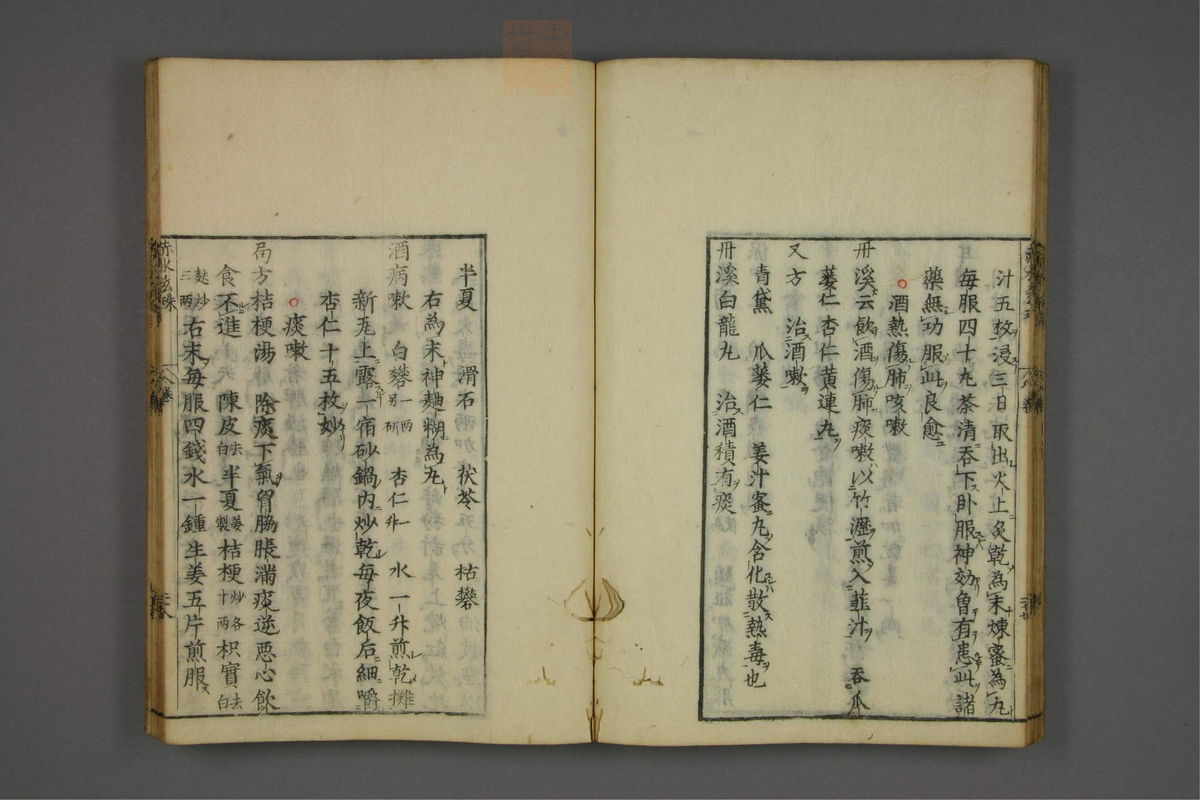 汁五枚浸三日取出火上炙乾為末煉蜜為丸
每服四十丸茶清吞下卧服神効曽有患此諸
藥無功服此良愈
酒熱傷肺咳嗽
丹溪云飲酒傷肺痰嗽以竹瀝煎入韮汁吞瓜
蔞仁杏仁黄連丸
又方 治酒嗽
青黛 瓜蔞仁 姜汁蜜丸含化散熱毒也
丹溪白龍丸 治酒積有痰
半夏 滑石 茯苓 枯礬
右為末神麯糊為丸
酒病嗽 白礬一兩别研 杏仁一升 水一升煎乾攤
新瓦上露一宿砂鍋内炒乾每夜飯后細嚼
杏仁十五枚妙
痰嗽
局方桔梗湯 除痰下氣胷脇脹滿痰逆惡心飲
食不進 陳皮去白半夏姜製桔梗炒各十兩枳實去白
麩炒三兩右末每服四錢水一鍾生姜五片煎服
赤水玄珠
八卷